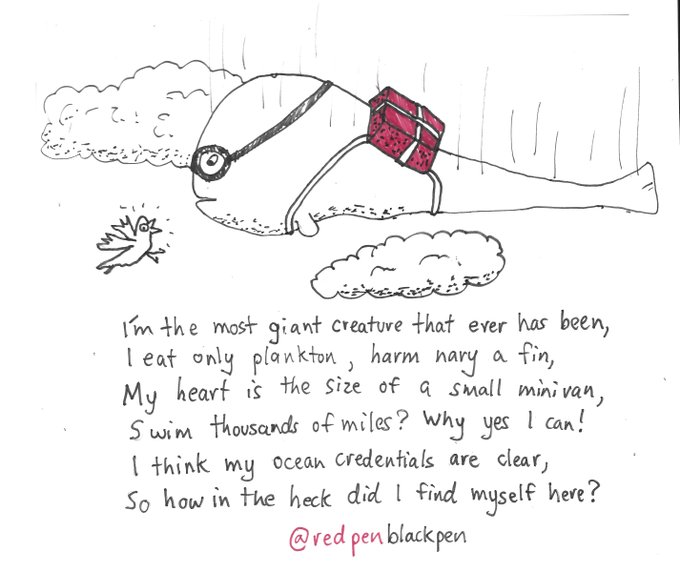 I'm the most giant creature that ever has been,
I eat only plankton, harm nary a fin,
My heart is the size of a small minivan,
Swim thousands of miles? Why yes I can!
I think my ocean credentials are clear,
So how in the heck did I find myself here?
@redpenblackpen